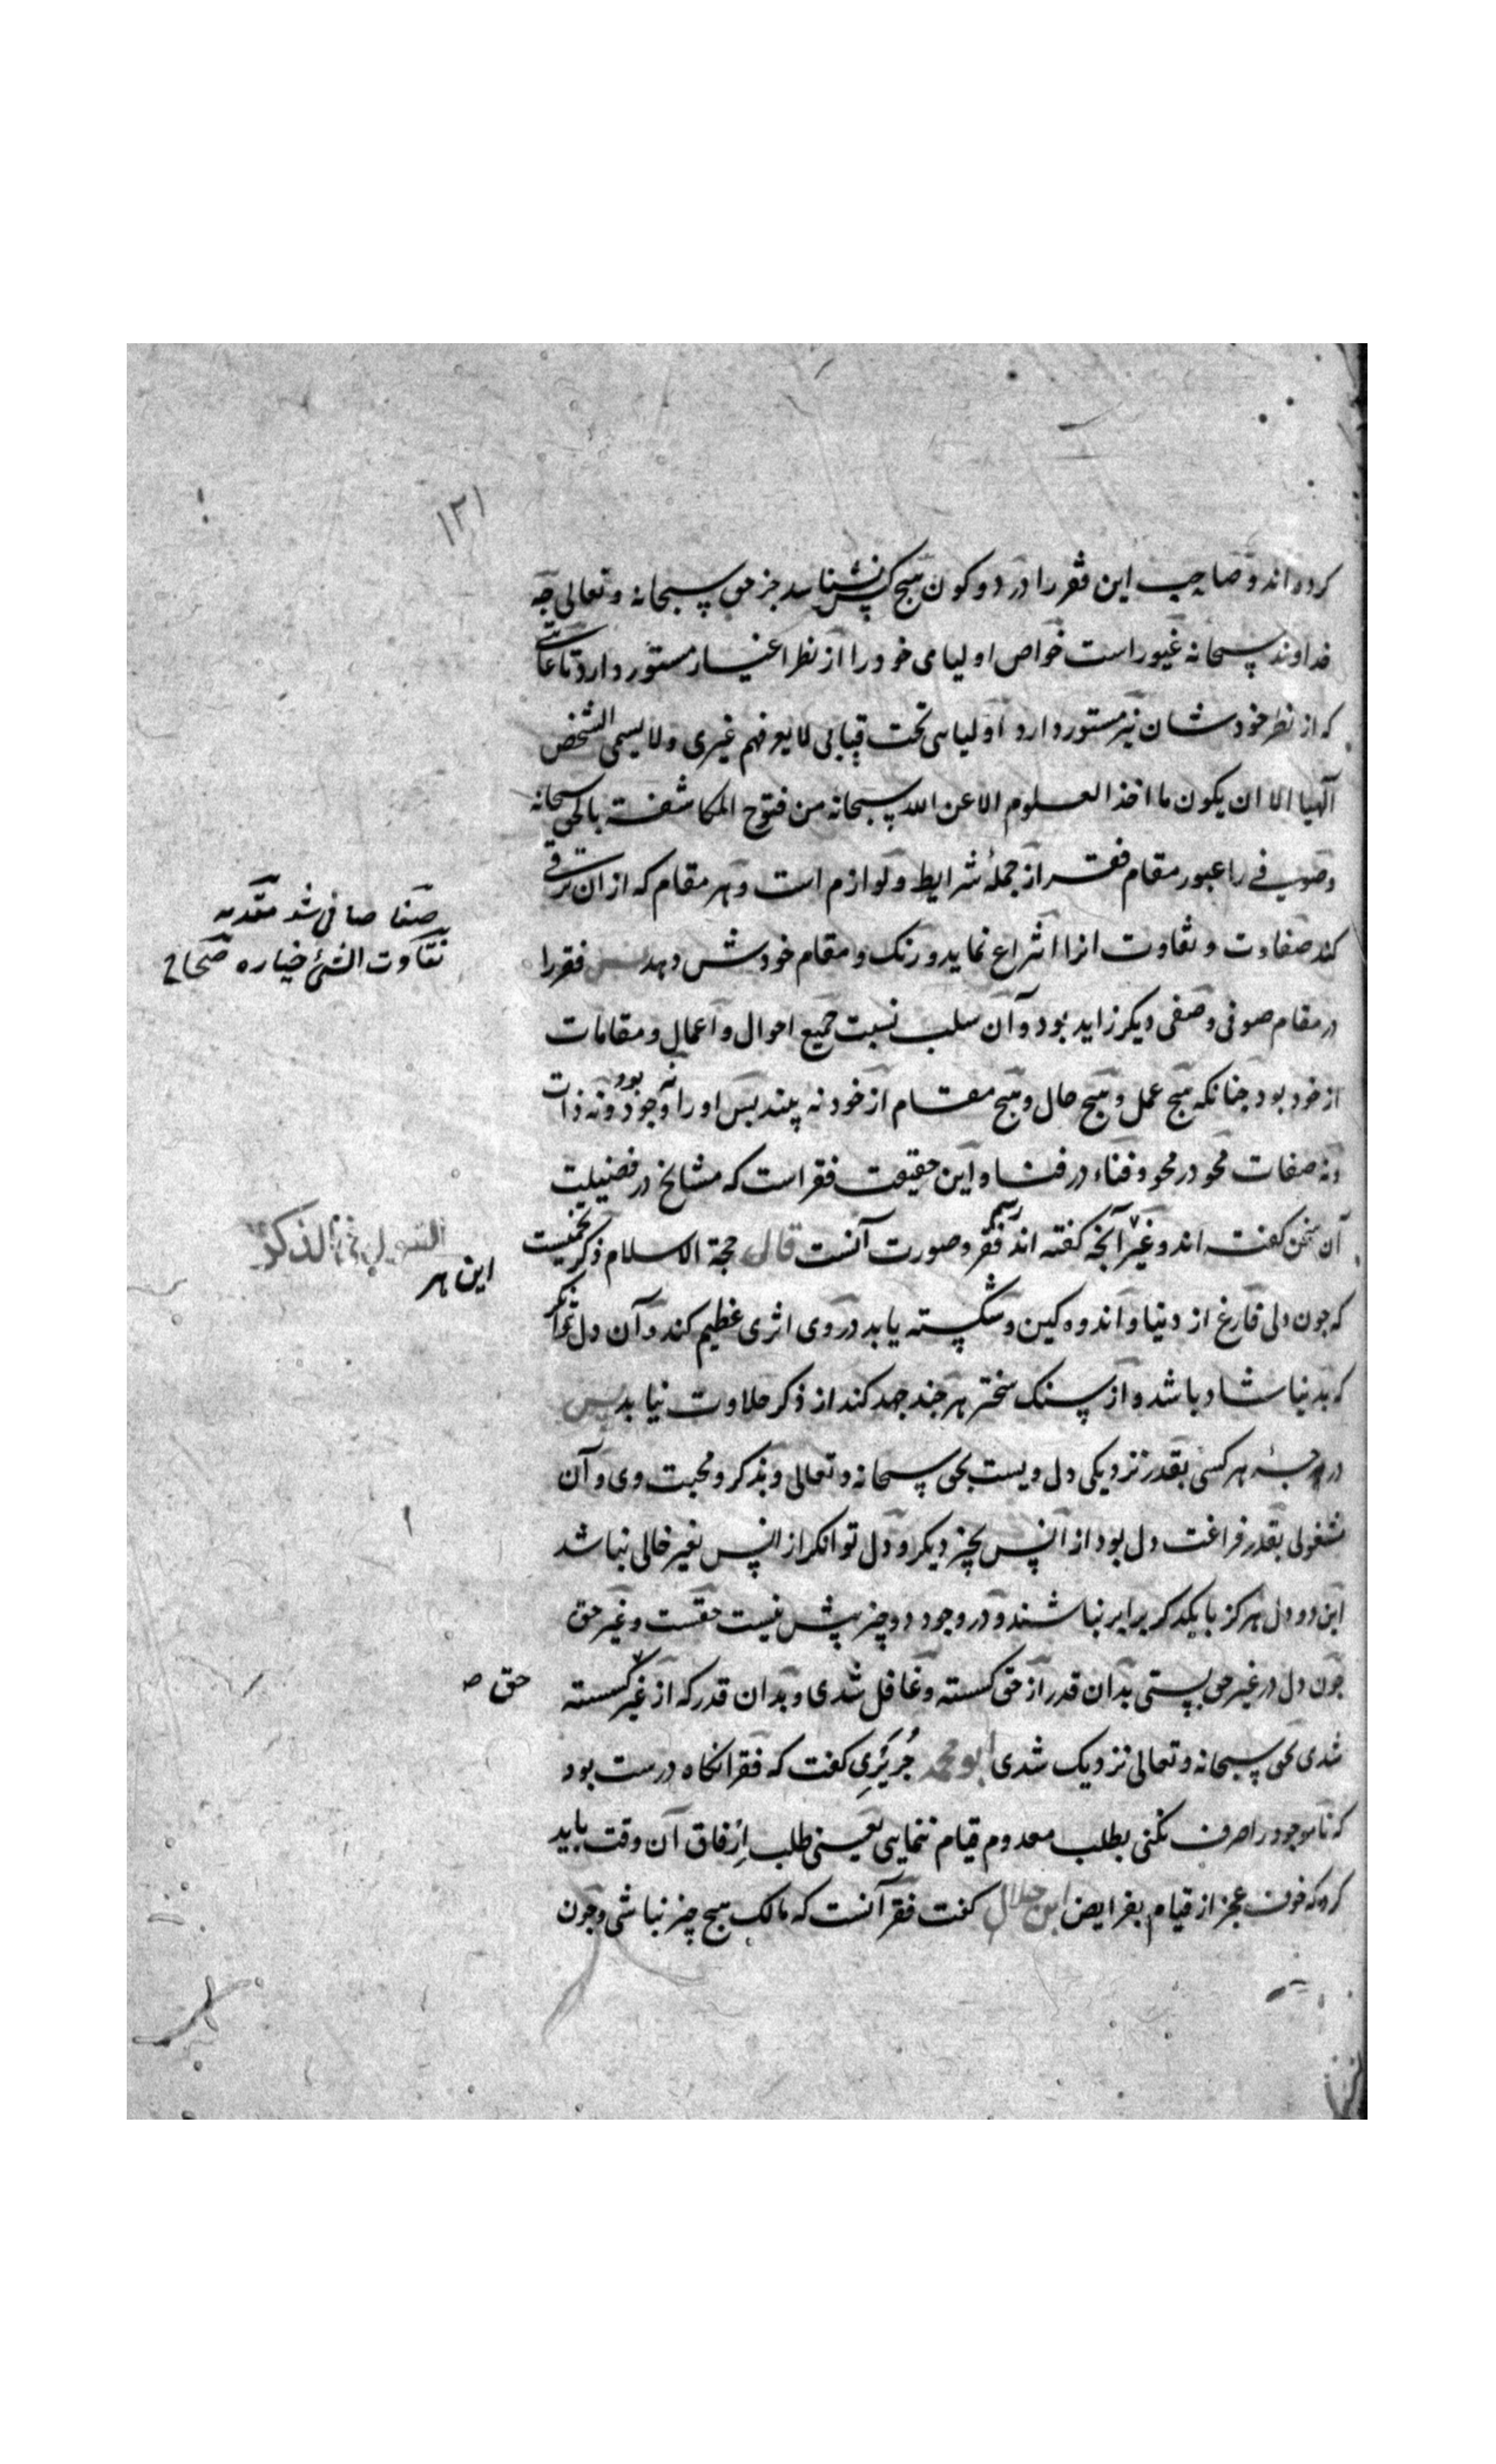 ۱۲۱
کرده اند و صاحب این فقر را در دو کون هیچ کس نشناسد جز حق سبحانه و تعالی چه
خداوند سبحانه غیور است خواص اولیای خود را از نظر اغیار مستور دارد تا غایتی
که از نظر خودشان نیز مستور دارد اولیایی تحت قبابی لا یعرفهم غیری و لا یسمی الشخص
آلهیا الا ان یکون ما اخذ العلوم الا عن الله سبحانه من فتوح المکاشفة بالحق سبحانه
و صوفی را عبور مقام فقر از جملهٔ شرایط و لوازم است و هر مقام که از ان ترقی
کند صفاوت و نقاوت انرا انتزاع نماید و رنک و مقام خودش دهد پس فقر را
در مقام صوفی وصفی دیکر زاید بود و آن سلب نسبت جمیع احوال و اعمال و مقامات
از خود بود چنانکه هیچ عمل و هیچ حال و هیچ مقام از خود نه بیند پس او را نه وجود بود و نه ذات
و نه صفات محو در محو و فناء در فنا و این حقیقت فقر است که مشایخ در فضیلت
آن سخن کفته اند و غیر آنچه کفته اند رسم فقر و صورت آنست قال حجة الاسلام ذکر تخمیست
که چون دلی فارغ از دنیا و اندوه کین و شکسته یابد در وی اثری عظیم کند و آن دل توانکر
که بدنیا شاد باشد و از سنک سختر هر چند جهد کند از ذکر حلاوت نیابد پس
درجهٔ هر کسی بقدر نزدیکی دل ویست بحق سبحانه و تعالی و بذکر و محبت وی و آن
مشغولی بقدر فراغت دل بود از انس بچیز دیکر و دل توانکر از انس بغیر خالی نباشد
این دو دل هرکز با یکدکر برابر نباشند و در وجود دو چیز بیش نیست حقست و غیر حق
چون دل در غیر حق بستی بدان قدر از حق کسسته و غافل شدی و بدان قدر که از غیر کسسته
شدی بحق سبحانه و تعالی نزدیک شدی ابو محمد جُرَیْری کفت که فقر انکاه درست بود
که تا موجود را صرف نکنی بطلب معدوم قیام ننمایی یعنی طلب اِرفاق آن وقت باید
کرد که خوف عجز از قیام بفرایض ابن جلال کفت فقر آنست که مالک هیچ چیز نباشی و چون
صفا صافی شد مقدمه
نقاوت الشئ خیاره صحاح
این هر
حق صـ